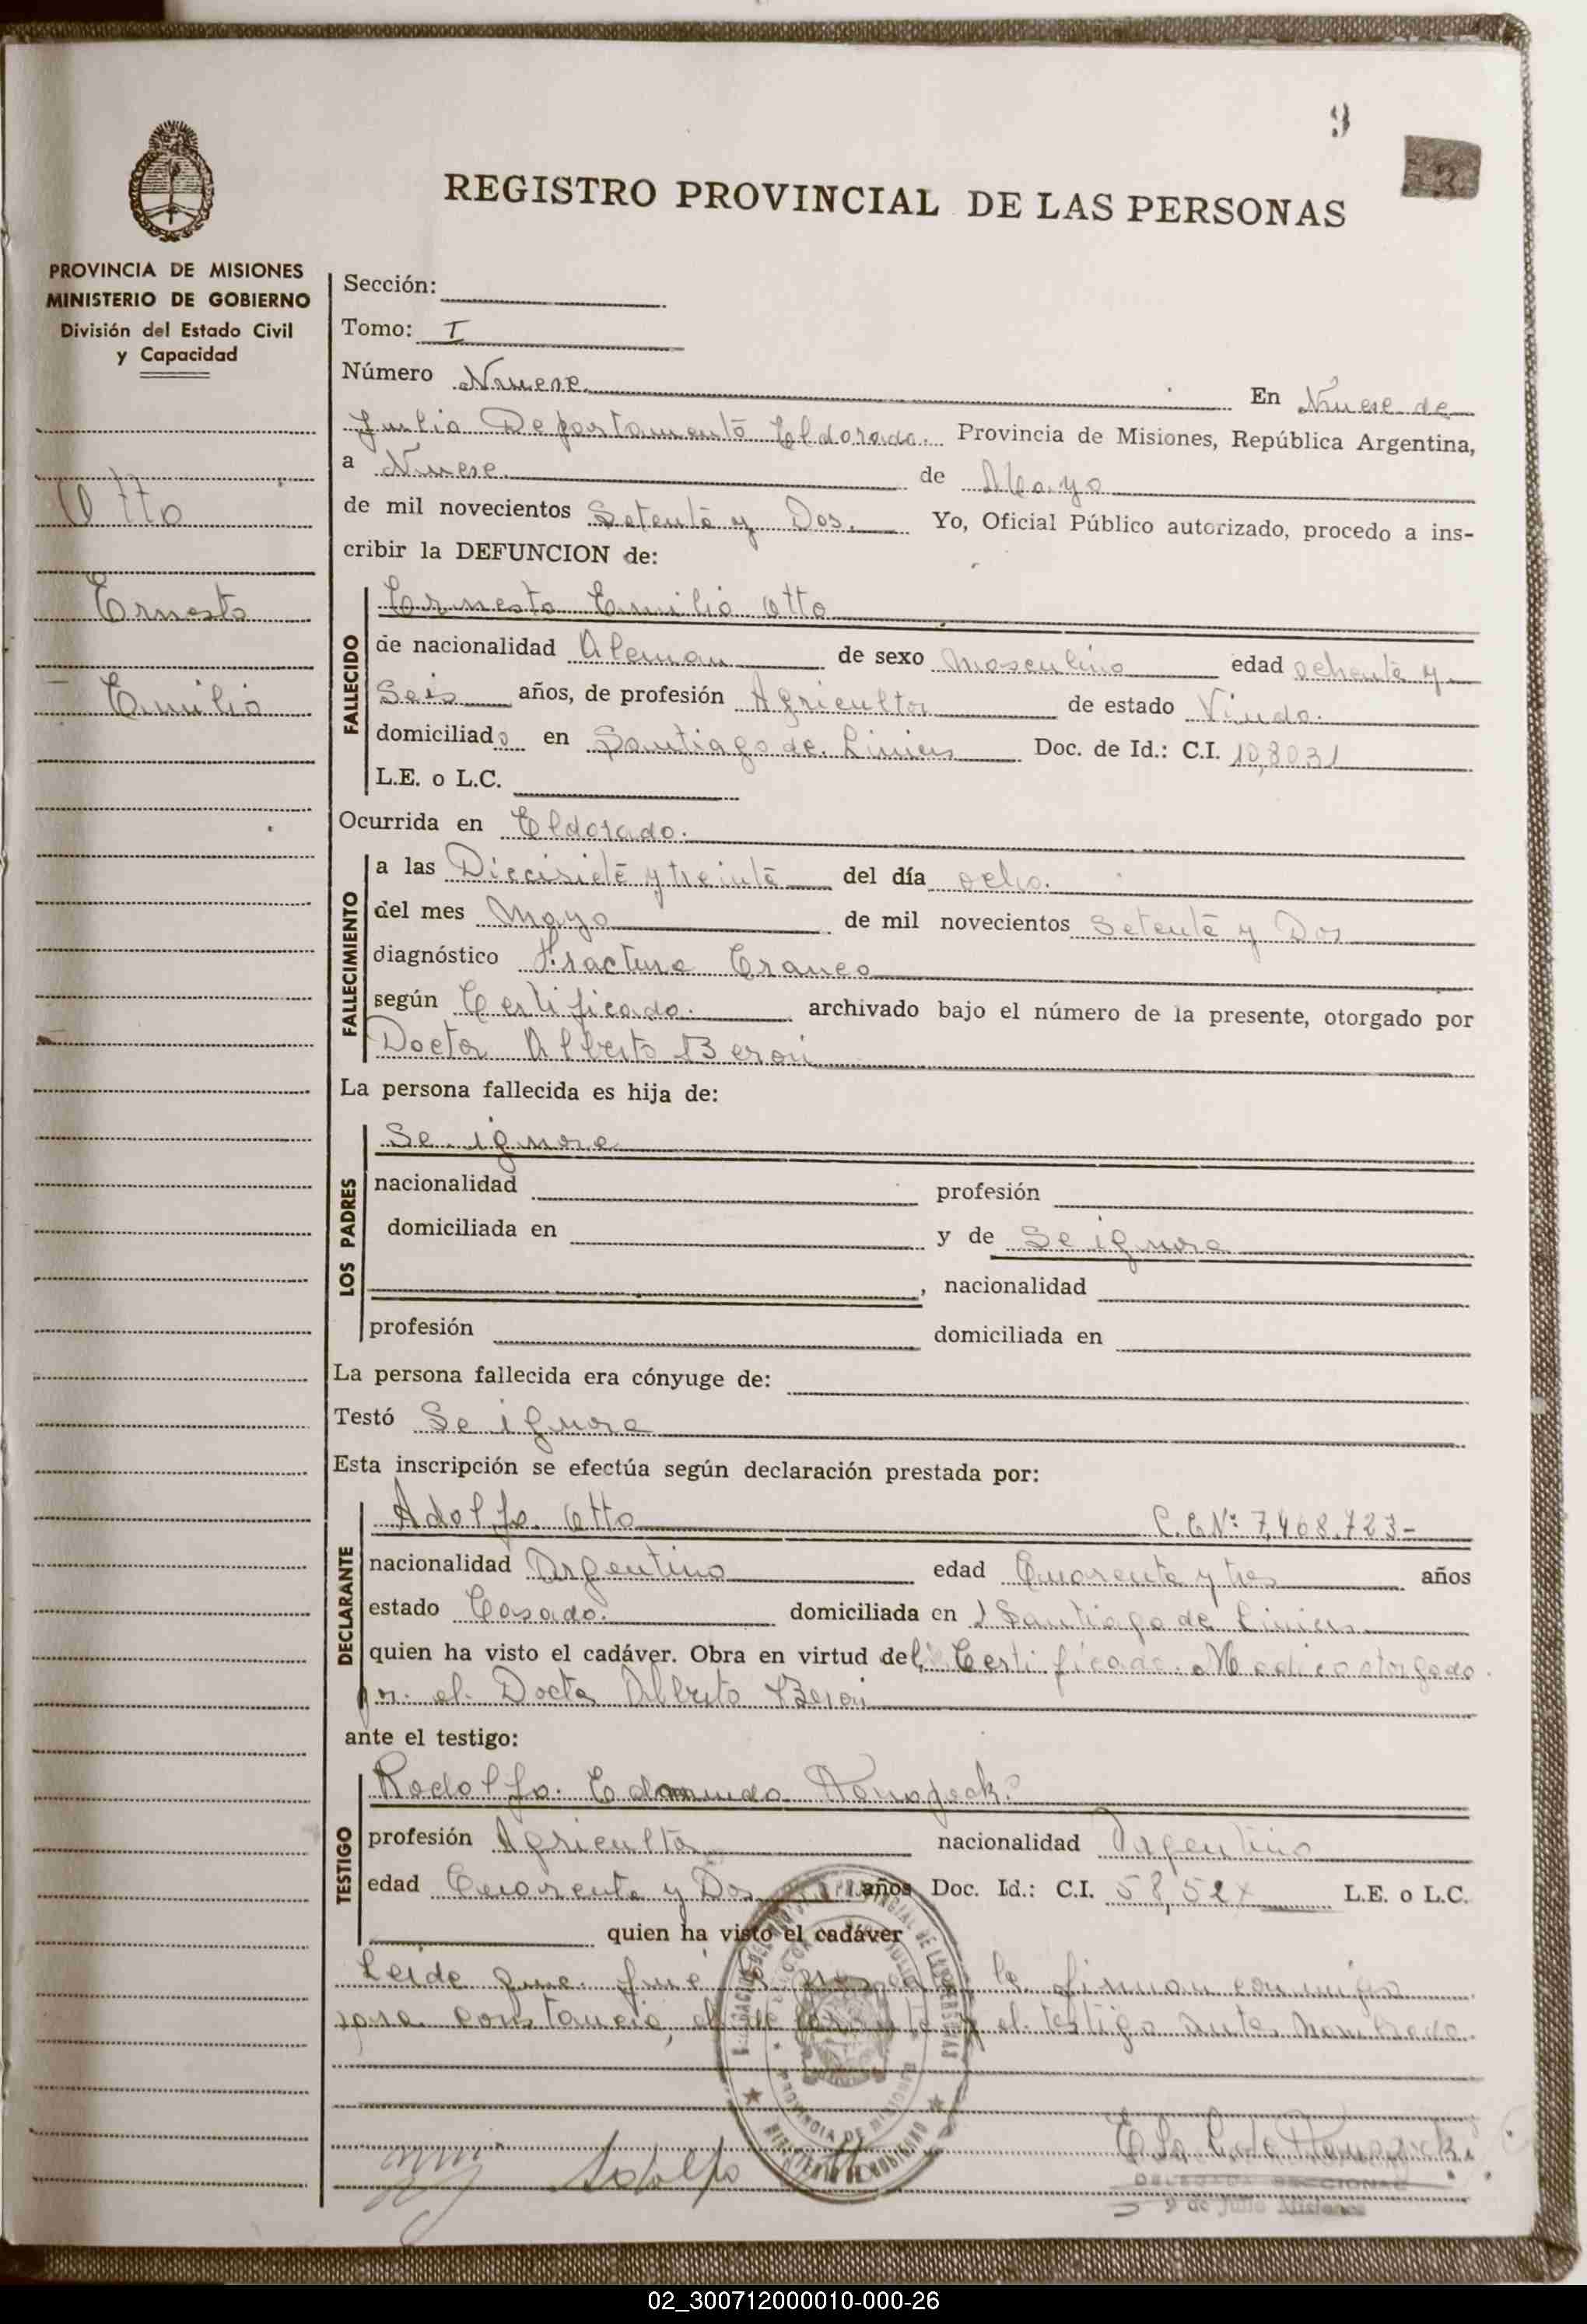 9
REGISTRO PROVINCIAL DE LAS PERSONAS
PROVINCIA DE MISIONES
MINISTERIO DE GOBIERNO
División del Estado Civil
y Capacidad
Otto
Ernesto
Emilio
Sección:
Tomo: I
Número Nueve En Nueve de
Julio Departamento Eldorado. Provincia de Misiones, República Argentina,
a Nueve de Mayo
de mil novecientos Setenta y Dos. Yo, Oficial Público autorizado, procedo a ins-
cribir la DEFUNCION de:
FALLECIDO
Ernesto Emilio Otto
de nacionalidad Aleman de sexo Masculino edad ochenta y
Seis años, de profesión Agricultor de estado Viudo.
domiciliado en Santiago de Liniers Doc. de Id.: C.I. 10,8031
L.E. o L.C.
Ocurrida en Eldorado.
FALLECIMIENTO
a las Diecisiete y treinta del día ocho.
del mes Mayo de mil novecientos Setenta y Dos
diagnóstico Fractura Craneo
según Certificado. archivado bajo el número de la presente, otorgado por
Doctor Alberto Beron
La persona fallecida es hija de:
LOS PADRES
Se ignora
nacionalidad profesión
domiciliada en y de Se ignora
, nacionalidad
profesión domiciliada en
La persona fallecida era cónyuge de:
Testó Se ignora
Esta inscripción se efectúa según declaración prestada por:
DECLARANTE
Adolfo Otto Nº 7,468.723-
nacionalidad Argentino edad Cuarenta y tres años
estado Casado. domiciliada en Santiago de Liniers
quien ha visto el cadáver. Obra en virtud del Certificado Medico otorgado
por el Doctor Alberto Beron
ante el testigo:
TESTIGO
Rodolfo Edmundo
profesión Agricultor nacionalidad Argentino
edad Cuarenta y Dos años Doc. Id.: C.I. L.E. o L.C.
quien ha visto el cadáver
Leida que fue la firman conmigo
para constancia, el y el testigo antes nombrado.
PROVINCIA DE MISIONES
MINISTERIO DE GOBIERNO
Adolfo
DELEGADA SECCIONAL
9 de Julio Misiones
02_300712000010-000-26